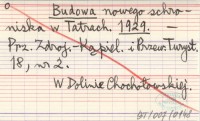 Budowa nowego schro-
niska w Tatrach. 1929. —
Prz. Zdroj.-Kąpiel. i Przew. Turyst.
18, nr 2.
W Dolinie Chochołowskiej.